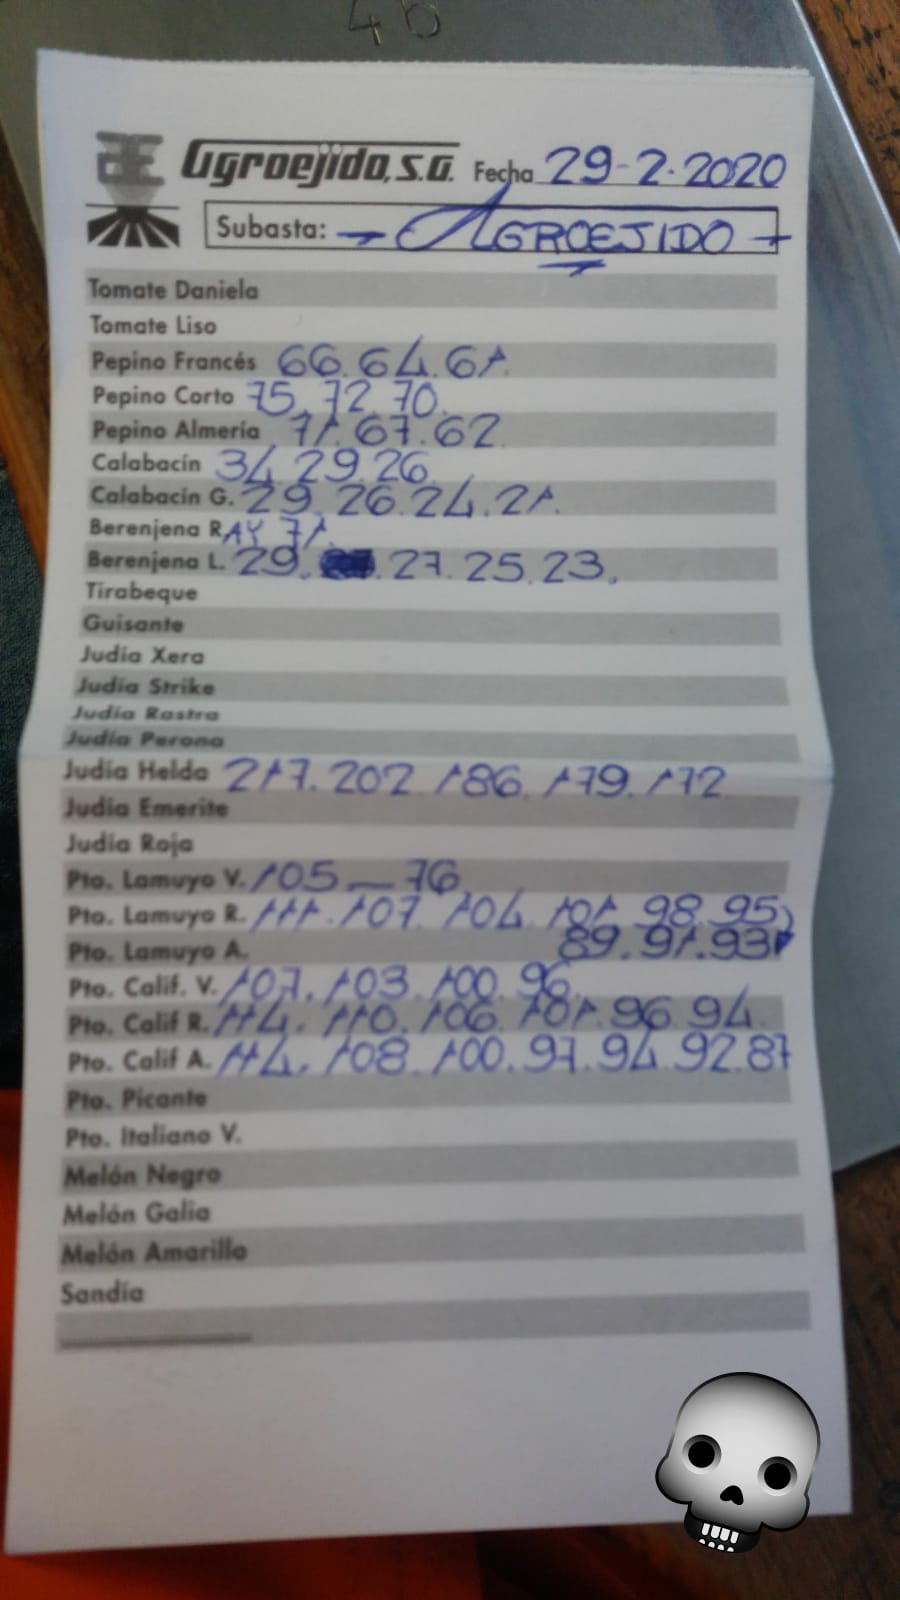 46
Agroejido, S.A. Fecha 29-2-2020
Subasta: - AGROEJIDO -
Tomate Daniela
Tomate Liso
Pepino Francés 66.64.61.
Pepino Corto 75.72.70.
Pepino Almería 71.67.62.
Calabacín 34.29.26.
Calabacín G. 29.26.24.21.
Berenjena RAY 71.
Berenjena L. 29. 27.25.23.
Tirabeque
Guisante
Judía Xera
Judía Strike
Judía Rastra
Judía Perona
Judía Helda 217.202.186.179.172
Judía Emerite
Judía Roja
Pto. Lamuyo V. 105-76
Pto. Lamuyo R. 111.107.104.101.98.95
Pto. Lamuyo A. 89.91.93
Pto. Calif. V. 107.103.100.96
Pto. Calif R. 114.110.106.101.96.94.
Pto. Calif A. 114.108.100.97.94.92.87
Pto. Picante
Pto. Italiano V.
Melón Negro
Melón Galia
Melón Amarillo
Sandía